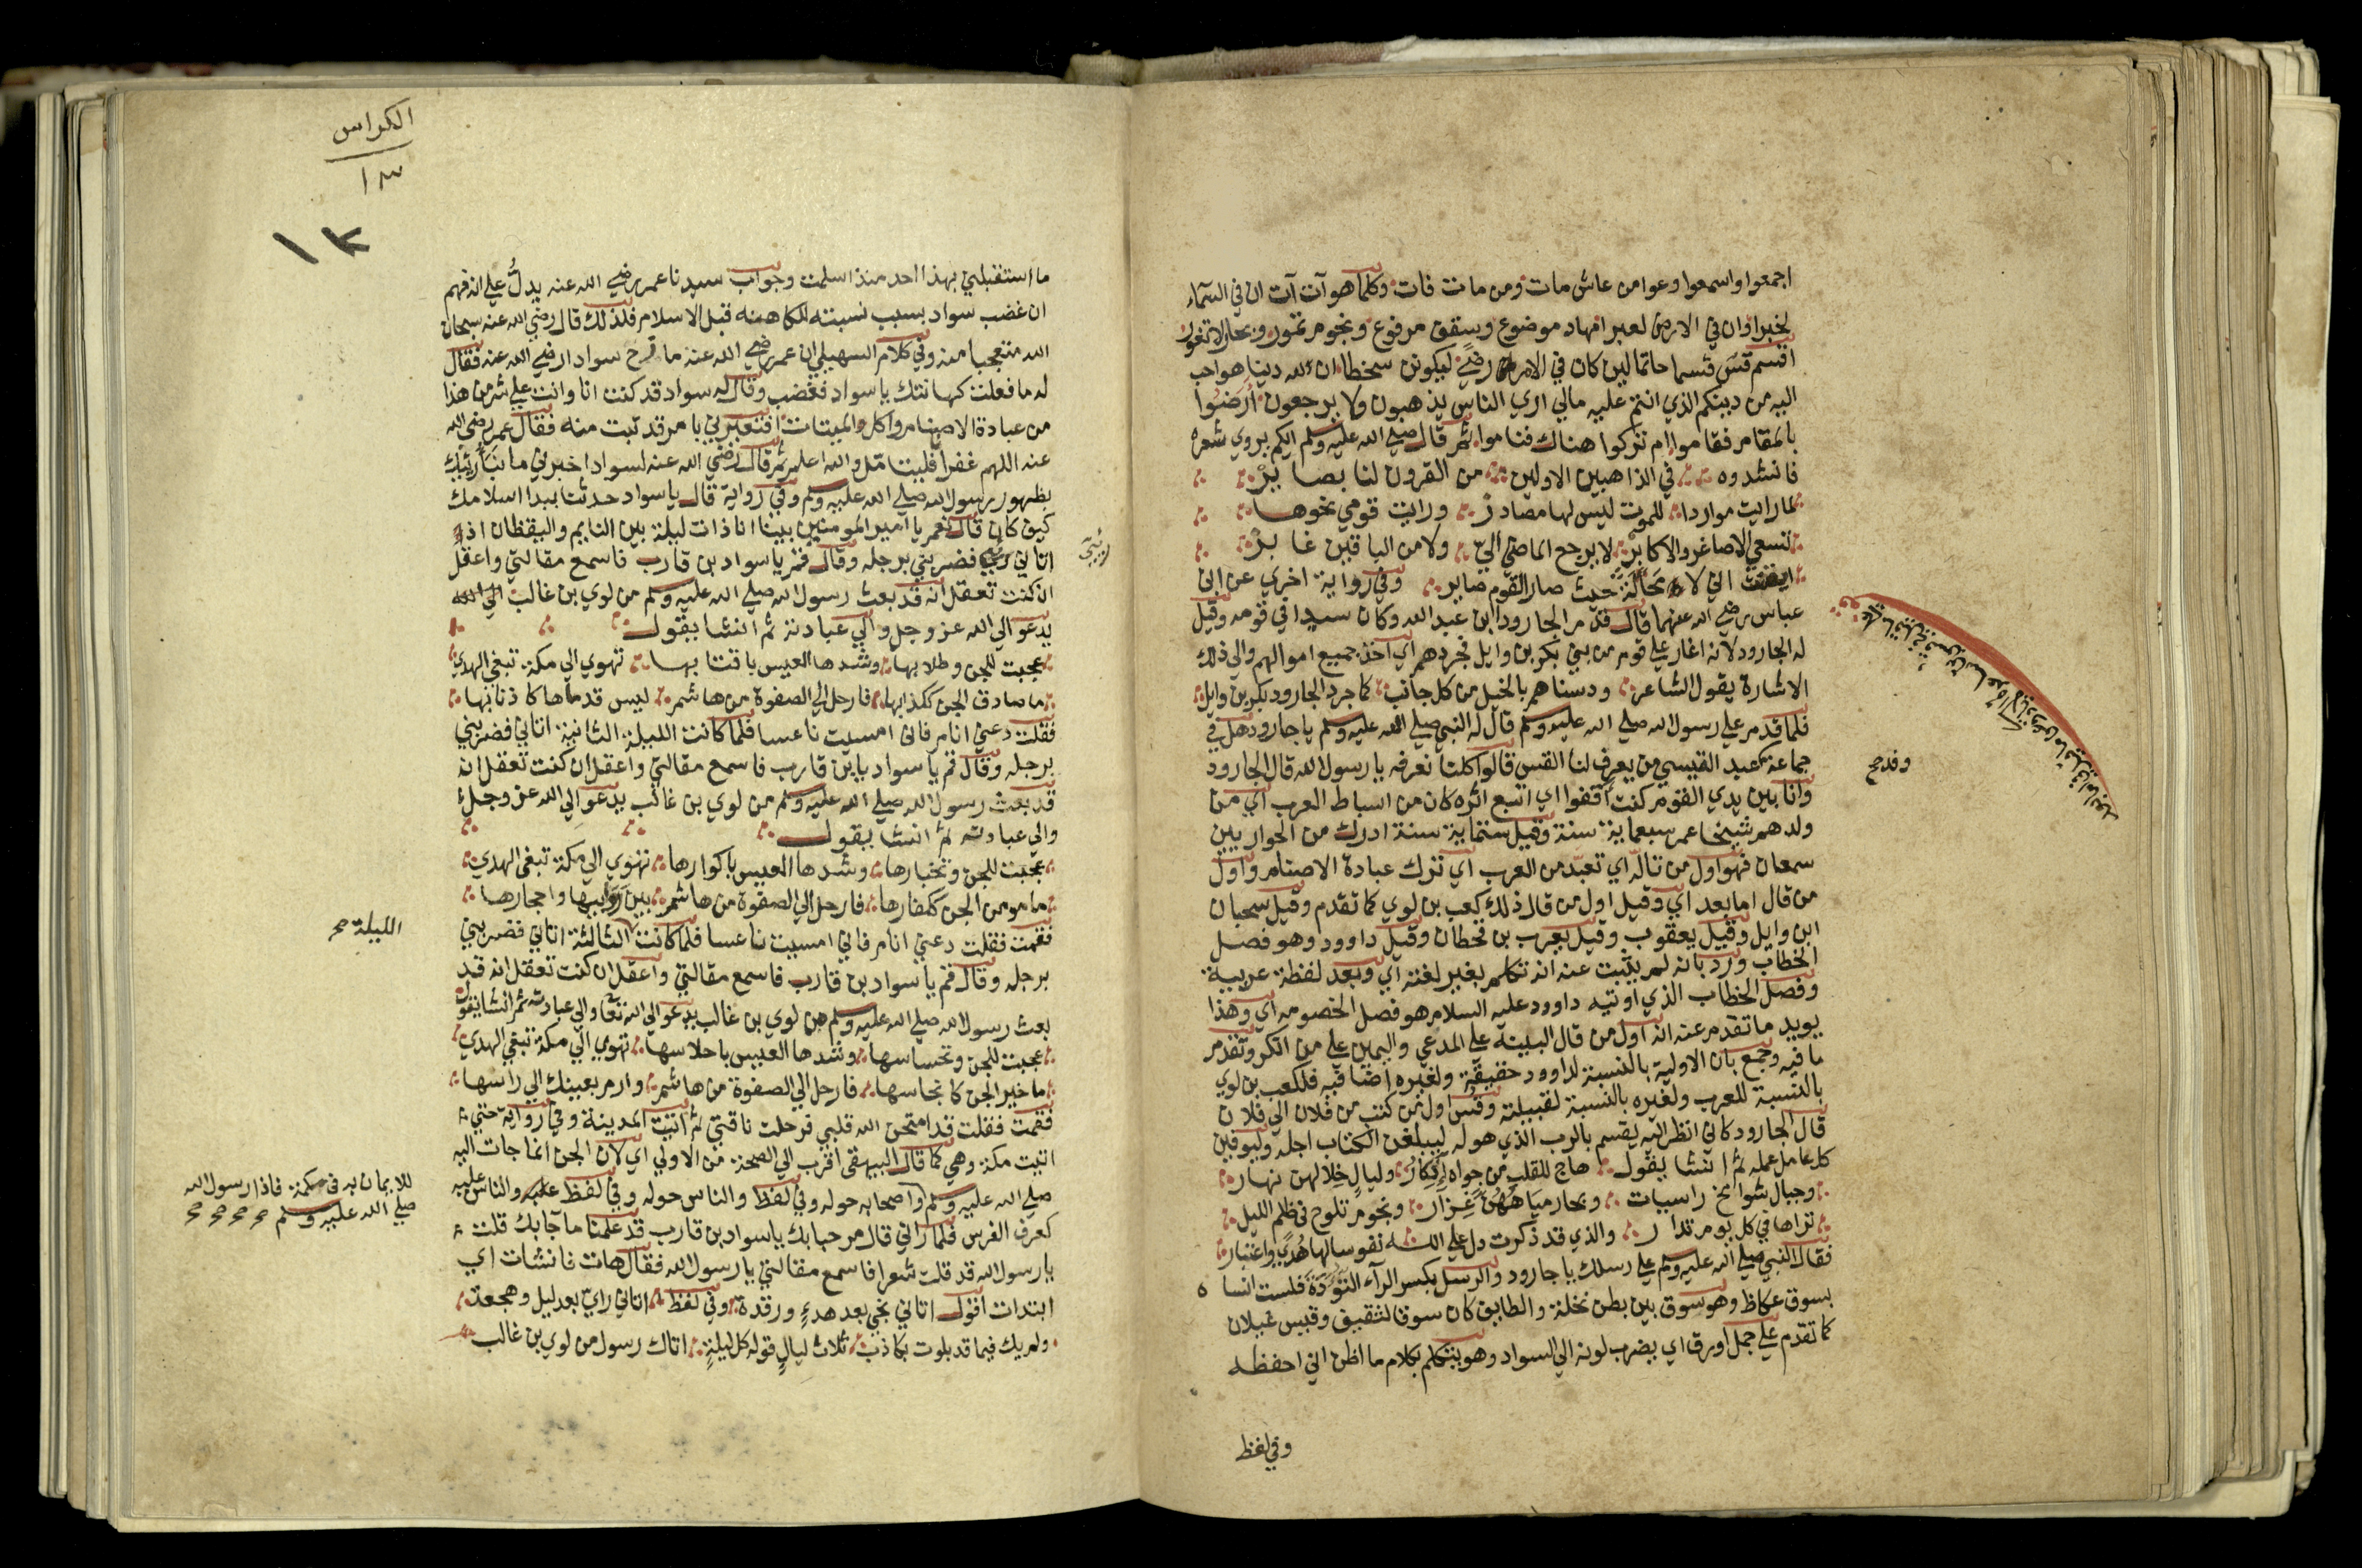 اجمعوا واسمعوا وعوا من عاش مات ومن مات فات وكلما هو آت آت ان في السماء
لخبرا وان في الارض لعبرا مهاد موضوع وسقف مرفوع ونجوم تمور وبحار لا تغور
اقسم قس قسما حاتما لين كان في الامر رضي ليكونن سخطا ان لله دينا هو احب
اليه من دينكم الذي انتم عليه مالي اري الناس يذهبون ولا يرجعون ارضوا
بالمقام فقاموا ام تركوا هناك فناموا ثم قال صلي الله عليه وسلم ايكم يروي شعره
فانشدوه في الذاهبين الاولين من القرون لنا بصاير
لما رايت مواردا للموت ليس لها مصادر ورايت قومي نحوها
تسعي الاصاغر والاكابر لا يرجع الماضي الي ولا من الباقين غابر
ايقنت اني لا محالة حيث صار القوم صاير وفي رواية اخري عن ابن
عباس رضي الله عنهما قال قدم الجارود ابن عبد الله وكان سيدا في قومه وقيل
له الجارود لانه اغار علي قوم من بني بكر بن وايل فجردهم اي اخذ جميع اموالهم والي ذلك
الاشارة يقول الشاعر ودسناهم بالخيل من كل جانب كما جرد الجارود بكر بن وايل
فلما قدم علي رسول الله صلي الله عليه وسلم قال له النبي صلي الله عليه وسلم يا جارود هل في
جماعة عبد القيسي من يعرف لنا القس قالوا كلنا نعرفه يا رسول الله قال الجارود
وانا بين يدي القوم كنت اقفوا اي اتبع اثره كان من اسباط العرب اي من
ولدهم شيخا عمر سبعماية سنة وقيل ستماية سنة ادرك من الحواريين
سمعان فهو اول من تاله اي تعبد من العرب اي ترك عبادة الاصنام واول
من قال اما بعد اي وقيل اول من قال ذلك كعب بن لوي كما تقدم وقيل سحبان
ابن وايل وقيل يعقوب وقيل يعرب بن قحطان وقيل داوود وهو فصل
الخطاب ورد بانه لم يثبت عنه انه تكلم بغير لغته اي وبعد لفظة عربية
وفصل الخطاب الذي اوتيه داوود عليه السلام هو فصل الخصومه اي وهذا
يويد ما تقدم عنه انه اول من قال البينة علي المدعي واليمين علي من انكر وتقدم
ما فيه وجمع بان الاولية بالنسبة لداوود حقيقة ولغيره اضافيه فلكعب بن لوي
بالنسبة للعرب ولغيره بالنسبة لقبيلته وقس اول من كتب من فلان الي فلان
قال الجارود كاني انظر اليه يقسم بالرب الذي هو له ليبلغن الكتاب اجله وليوفين
كل عامل عمله ثم انشا يقول هاج للقلب من جواه ادكار وليال خلالهن نهار
وجبال شوامخ راسيات وبحار مياههن غزار ونجوم تلوح في ظلم الليل
تراها في كل يوم تدار والذي قد ذكرت دل علي الله نفوسا لها هدي واعتبار
فقال النبي صلي الله عليه وسلم علي رسلك يا جارود والرسل بكسر الراء التؤدة فلست انسا
بسوق عكاظ وهو سوق بين بطن نخلة والطايف كان سوقا لثقيف وقيس غيلان
كما تقدم علي جمل اورق اي يضرب لونه الي السواد وهو يتكلم بكلام ما اظن اني احفظه
وفد صح
وفي لفظ
الكراس
١٣
١٣
ما استقبلني بهذا احد منذ اسلمت وجواب سيدنا عمر رضي الله عنه يدل علي انه فهم
ان غضب سواد بسبب نسبته للكاهنه قبل الاسلام فلذلك قال رضي الله عنه سبحان
الله متعجبا منه وفي كلام السهيلي ان عمر رضي الله عنه مازح سوادا رضي الله عنه فقال
له ما فعلت كهانتك يا سواد فغضب وقال له سواد قد كنت انا وانت علي شر من هذا
من عبادة الاصنام واكل والميتات افتعيرني بامر قد تبت منه فقال عمر رضي الله
عنه اللهم غفرا فليتامل والله اعلم ثم قال رضي الله عنه لسواد اخبرني ما نبأ رئيك
بظهور رسول الله صلي الله عليه وسلم وفي رواية قال يا سواد حدثنا ببدا اسلامك
كيف كان قال نعم يا امير المومنين بينا انا ذات ليلة بين النايم واليقظان اذ
اتاني رئيي فضربني برجله وقال قم يا سواد بن قارب فاسمع مقالتي واعقل
رئيي
ان كنت تعقل انه قد بعث رسول الله صلي الله عليه وسلم من لوي بن غالب
يدعو الي الله عز وجل والي عبادته ثم انشا يقول
عجبت للجن وطلابها وشدها العيس باقتابها تهوي الي مكة تبغي الهدي
ما صادق الجن ككذابها فارحل الي الصفوة من هاشم ليس قدماها كاذنابها
فقلت دعني انام فاني امسيت ناعسا فلما كانت الليلة الثانية اتاني فضربني
برجله وقال قم يا سواد يا بن قارب فاسمع مقالتي واعقل ان كنت تعقل انه
قد بعث رسول الله صلي الله عليه وسلم من لوي بن غالب يدعو الي الله عز وجل
والي عبادته ثم انشا يقول
عجبت للجن وتخبارها وشدها العيس باكوارها تهوي الي مكة تبغي الهدي
ما مومن الجن ككفارها فارحل الي الصفوة من هاشم بين روابيها واحجارها
فقمت فقلت دعني انام فاني امسيت ناعسا فلما كانت الثالثة اتاني فضربني
الليلة صح
برجله وقال قم يا سواد بن قارب فاسمع مقالتي واعقل ان كنت تعقل انه قد
بعث رسول الله صلي الله عليه وسلم من لوي بن غالب يدعو الي الله تعا والي عبادته ثم انشا يقول
عجبت للجن وتحساسها وشدها العيس باحلاسها تهوي الي مكة تبغي الهدي
ما خير الجن كانجاسها فارحل الي الصفوة من هاشم وارم بعينك الي راسها
فقمت فقلت قد امتحن الله قلبي فرحلت ناقتي ثم اتيت المدينة وفي رواية حتي
اتيت مكة وهي كما قال البيهقي اقرب الي الصحة من الاولي اي لان الجن انما جات اليه
للايمان به في مكة فاذا رسول الله
صلي الله عليه وسلم صح صح صح صح
صلي الله عليه وسلم واصحابه حوله وفي لفظ والناس حوله وفي لفظ والناس عليه
كعرف الفرس فلما راني قال مرحبا بك يا سواد بن قارب قد علمنا ما جآ بك قلت
يا رسول الله قد قلت شعرا فاسمع مقالتي يا رسول الله فقال هات فانشات اي
ابتدات اقول اتاني نجي بعد هدء ورقدة وفي لفظ اتاني رايي بعد ليل وهجعة
ولم يك فيما قد بلوت بكاذب ثلاث ليال قوله كل ليلة اتاك رسول من لوي بن غالب